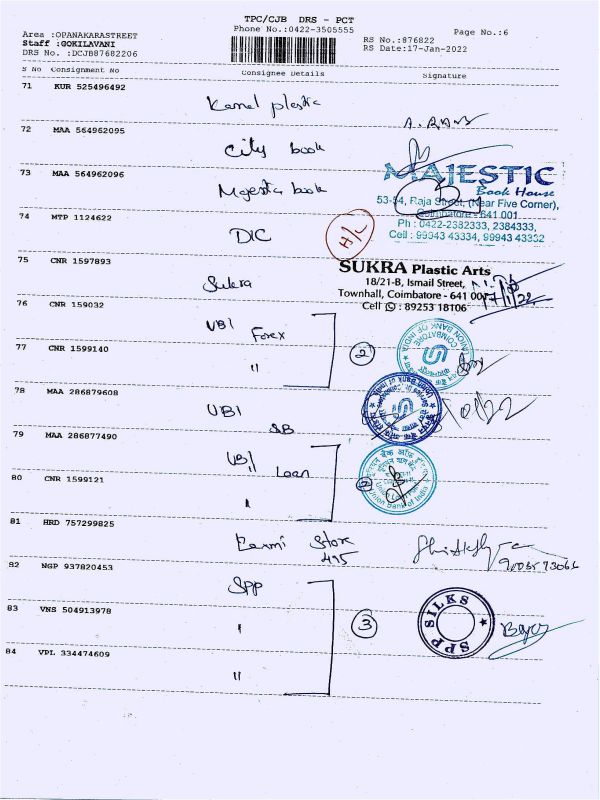 TPC/CJB DRS - PCT
Area :OPANAKARASTREET
Phone No.:0422-3505555
Page No.:6
Staff :GOKILAVANI
RS No.:876822
DRS No. :DCJB87682206
RS Date:17-Jan-2022
S No Consignment No Consignee Details Signature
71 KUR 525496492
Kamal plastic
72 MAA 564962095
City book
73 MAA 564962096
Majestic book
MAJESTIC
Book House
53-54, Raja Street, (Near Five Corner),
Coimbatore - 641 001
Ph : 0422-2382333, 2384333,
Cell : 99943 43334, 99943 43332
74 MTP 1124622
DIC
H/C
75 CNR 1597893
Sukra
SUKRA Plastic Arts
18/21-B, Ismail Street,
Townhall, Coimbatore - 641 001
Cell : 89253 18106
17/1/22
76 CNR 159032
UBI Forex
77 CNR 1599140
"
2
UNION BANK OF INDIA
COIMBATORE
78 MAA 286879608
UBI SB
79 MAA 286877490
UBI Loan
80 CNR 1599121
"
2
Union Bank of India
81 HRD 757299825
Laxmi Store
495
82 NGP 937820453
SPP
83 VNS 504913978
"
84 VPL 334474609
"
3
SPP SILKS